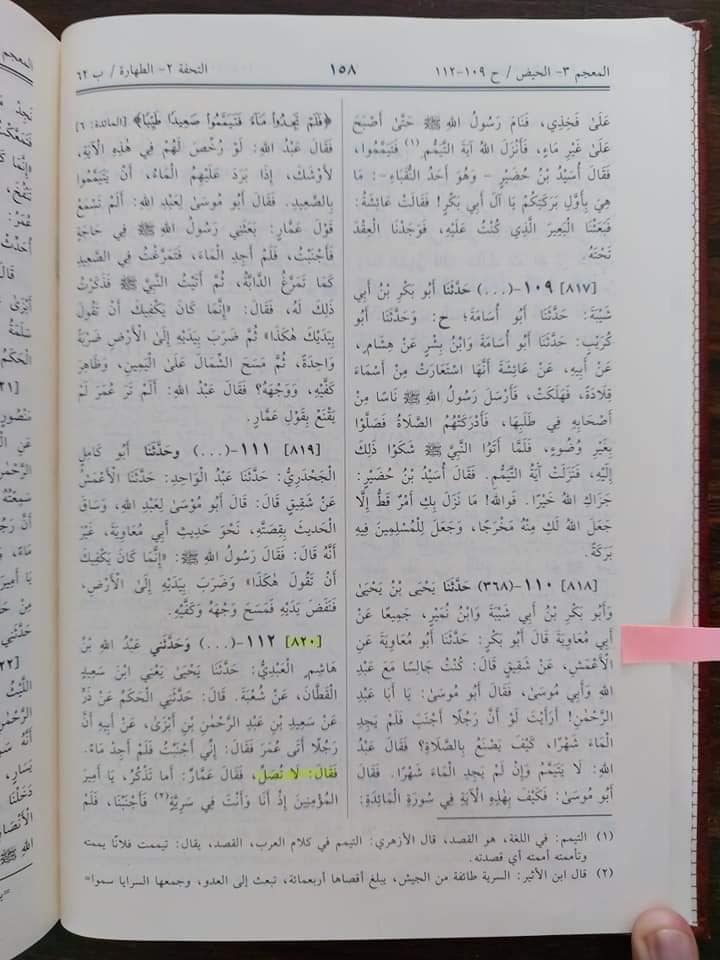 المعجم ٣- الحيض / ح ١٠٩-١١٢
١٥٨
التحفة ٢- الطهارة / ب ٦٢
عَلَىٰ فَخِذِي، فَنَامَ رَسُولُ اللهِ ﷺ حَتَّىٰ أَصْبَحَ
عَلَىٰ غَيْرِ مَاءٍ، فَأَنْزَلَ اللهُ آيَةَ التَّيَمُّمِ(١) فَتَيَمَّمُوا،
فَقَالَ أُسَيْدُ بْنُ حُضَيْرٍ - وَهُوَ أَحَدُ النُّقَبَاءِ-: مَا
هِيَ بِأَوَّلِ بَرَكَتِكُمْ يَا آلَ أَبِي بَكْرٍ! فَقَالَتْ عَائِشَةُ:
فَبَعَثْنَا الْبَعِيرَ الَّذِي كُنْتُ عَلَيْهِ، فَوَجَدْنَا الْعِقْدَ
تَحْتَهُ.
[٨١٧] ١٠٩-(...) حَدَّثَنَا أَبُو بَكْرِ بْنُ أَبِي
شَيْبَةَ: حَدَّثَنَا أَبُو أُسَامَةَ؛ ح: وَحَدَّثَنَا أَبُو
كُرَيْبٍ: حَدَّثَنَا أَبُو أُسَامَةَ وَابْنُ بِشْرٍ عَنْ هِشَامٍ،
عَنْ أَبِيهِ، عَنْ عَائِشَةَ أَنَّهَا اسْتَعَارَتْ مِنْ أَسْمَاءَ
قِلَادَةً، فَهَلَكَتْ، فَأَرْسَلَ رَسُولُ اللهِ ﷺ نَاسًا مِنْ
أَصْحَابِهِ فِي طَلَبِهَا، فَأَدْرَكَتْهُمُ الصَّلَاةُ فَصَلَّوْا
بِغَيْرِ وُضُوءٍ، فَلَمَّا أَتَوُا النَّبِيَّ ﷺ شَكَوْا ذٰلِكَ
إِلَيْهِ، فَنَزَلَتْ آيَةُ التَّيَمُّمِ. فَقَالَ أُسَيْدُ بْنُ حُضَيْرٍ:
جَزَاكِ اللهُ خَيْرًا. فَوَاللهِ! مَا نَزَلَ بِكِ أَمْرٌ قَطُّ إِلَّا
جَعَلَ اللهُ لَكِ مِنْهُ مَخْرَجًا، وَجَعَلَ لِلْمُسْلِمِينَ فِيهِ
بَرَكَةً.
[٨١٨] ١١٠-(٣٦٨) حَدَّثَنَا يَحْيَىٰ بْنُ يَحْيَىٰ
وَأَبُو بَكْرِ بْنُ أَبِي شَيْبَةَ وَابْنُ نُمَيْرٍ، جَمِيعًا عَنْ
أَبِي مُعَاوِيَةَ قَالَ أَبُو بَكْرٍ: حَدَّثَنَا أَبُو مُعَاوِيَةَ عَنِ
الْأَعْمَشِ، عَنْ شَقِيقٍ قَالَ: كُنْتُ جَالِسًا مَعَ عَبْدِ
اللهِ وَأَبِي مُوسَىٰ، فَقَالَ أَبُو مُوسَىٰ: يَا أَبَا عَبْدِ
الرَّحْمٰنِ! أَرَأَيْتَ لَوْ أَنَّ رَجُلًا أَجْنَبَ فَلَمْ يَجِدِ
الْمَاءَ شَهْرًا، كَيْفَ يَصْنَعُ بِالصَّلَاةِ؟ فَقَالَ عَبْدُ
اللهِ: لَا يَتَيَمَّمُ وَإِنْ لَمْ يَجِدِ الْمَاءَ شَهْرًا. فَقَالَ
أَبُو مُوسَىٰ: فَكَيْفَ بِهٰذِهِ الْآيَةِ فِي سُورَةِ الْمَائِدَةِ:
﴿فَلَمْ تَجِدُوا مَاءً فَتَيَمَّمُوا صَعِيدًا طَيِّبًا﴾ [المائدة: ٦]
فَقَالَ عَبْدُ اللهِ: لَوْ رُخِّصَ لَهُمْ فِي هٰذِهِ الْآيَةِ،
لَأَوْشَكَ، إِذَا بَرَدَ عَلَيْهِمُ الْمَاءُ، أَنْ يَتَيَمَّمُوا
بِالصَّعِيدِ. فَقَالَ أَبُو مُوسَىٰ لِعَبْدِ اللهِ: أَلَمْ تَسْمَعْ
قَوْلَ عَمَّارٍ: بَعَثَنِي رَسُولُ اللهِ ﷺ فِي حَاجَةٍ
فَأَجْنَبْتُ، فَلَمْ أَجِدِ الْمَاءَ، فَتَمَرَّغْتُ فِي الصَّعِيدِ
كَمَا تَمَرَّغُ الدَّابَّةُ، ثُمَّ أَتَيْتُ النَّبِيَّ ﷺ فَذَكَرْتُ
ذٰلِكَ لَهُ، فَقَالَ: «إِنَّمَا كَانَ يَكْفِيكَ أَنْ تَقُولَ
بِيَدَيْكَ هٰكَذَا» ثُمَّ ضَرَبَ بِيَدَيْهِ إِلَى الْأَرْضِ ضَرْبَةً
وَاحِدَةً، ثُمَّ مَسَحَ الشِّمَالَ عَلَى الْيَمِينِ، وَظَاهِرَ
كَفَّيْهِ، وَوَجْهَهُ؟ فَقَالَ عَبْدُ اللهِ: أَلَمْ تَرَ عُمَرَ لَمْ
يَقْنَعْ بِقَوْلِ عَمَّارٍ.
[٨١٩] ١١١-(...) وحَدَّثَنَا أَبُو كَامِلٍ
الْجَحْدَرِيُّ: حَدَّثَنَا عَبْدُ الْوَاحِدِ: حَدَّثَنَا الْأَعْمَشُ
عَنْ شَقِيقٍ قَالَ: قَالَ أَبُو مُوسَىٰ لِعَبْدِ اللهِ، وَسَاقَ
الْحَدِيثَ بِقِصَّتِهِ، نَحْوَ حَدِيثِ أَبِي مُعَاوِيَةَ، غَيْرَ
أَنَّهُ قَالَ: فَقَالَ رَسُولُ اللهِ ﷺ: «إِنَّمَا كَانَ يَكْفِيكَ
أَنْ تَقُولَ هٰكَذَا» وَضَرَبَ بِيَدَيْهِ إِلَى الْأَرْضِ،
فَنَفَضَ يَدَيْهِ فَمَسَحَ وَجْهَهُ وَكَفَّيْهِ.
[٨٢٠] ١١٢-(...) وَحَدَّثَنِي عَبْدُ اللهِ بْنُ
هَاشِمٍ الْعَبْدِيُّ: حَدَّثَنَا يَحْيَىٰ يَعْنِي ابْنَ سَعِيدٍ
الْقَطَّانَ، عَنْ شُعْبَةَ. قَالَ: حَدَّثَنِي الْحَكَمُ عَنْ ذَرٍّ
عَنْ سَعِيدِ بْنِ عَبْدِ الرَّحْمٰنِ بْنِ أَبْزَىٰ، عَنْ أَبِيهِ أَنَّ
رَجُلًا أَتَىٰ عُمَرَ فَقَالَ: إِنِّي أَجْنَبْتُ فَلَمْ أَجِدْ مَاءً.
فَقَالَ: لَا تُصَلِّ، فَقَالَ عَمَّارٌ: أَما تَذْكُرُ، يَا أَمِيرَ
الْمُؤْمِنِينَ إِذْ أَنَا وَأَنْتَ فِي سَرِيَّةٍ(٢) فَأَجْنَبْنَا، فَلَمْ
(١) التيمم: في اللغة، هو القصد، قال الأزهري: التيمم في كلام العرب، القصد، يقال: تيممت فلانًا يممته
وتأممته أممته أي قصدته.
(٢) قال ابن الأثير: السرية طائفة من الجيش، يبلغ أقصاها أربعمائة، تبعث إلى العدو، وجمعها السرايا سموا=